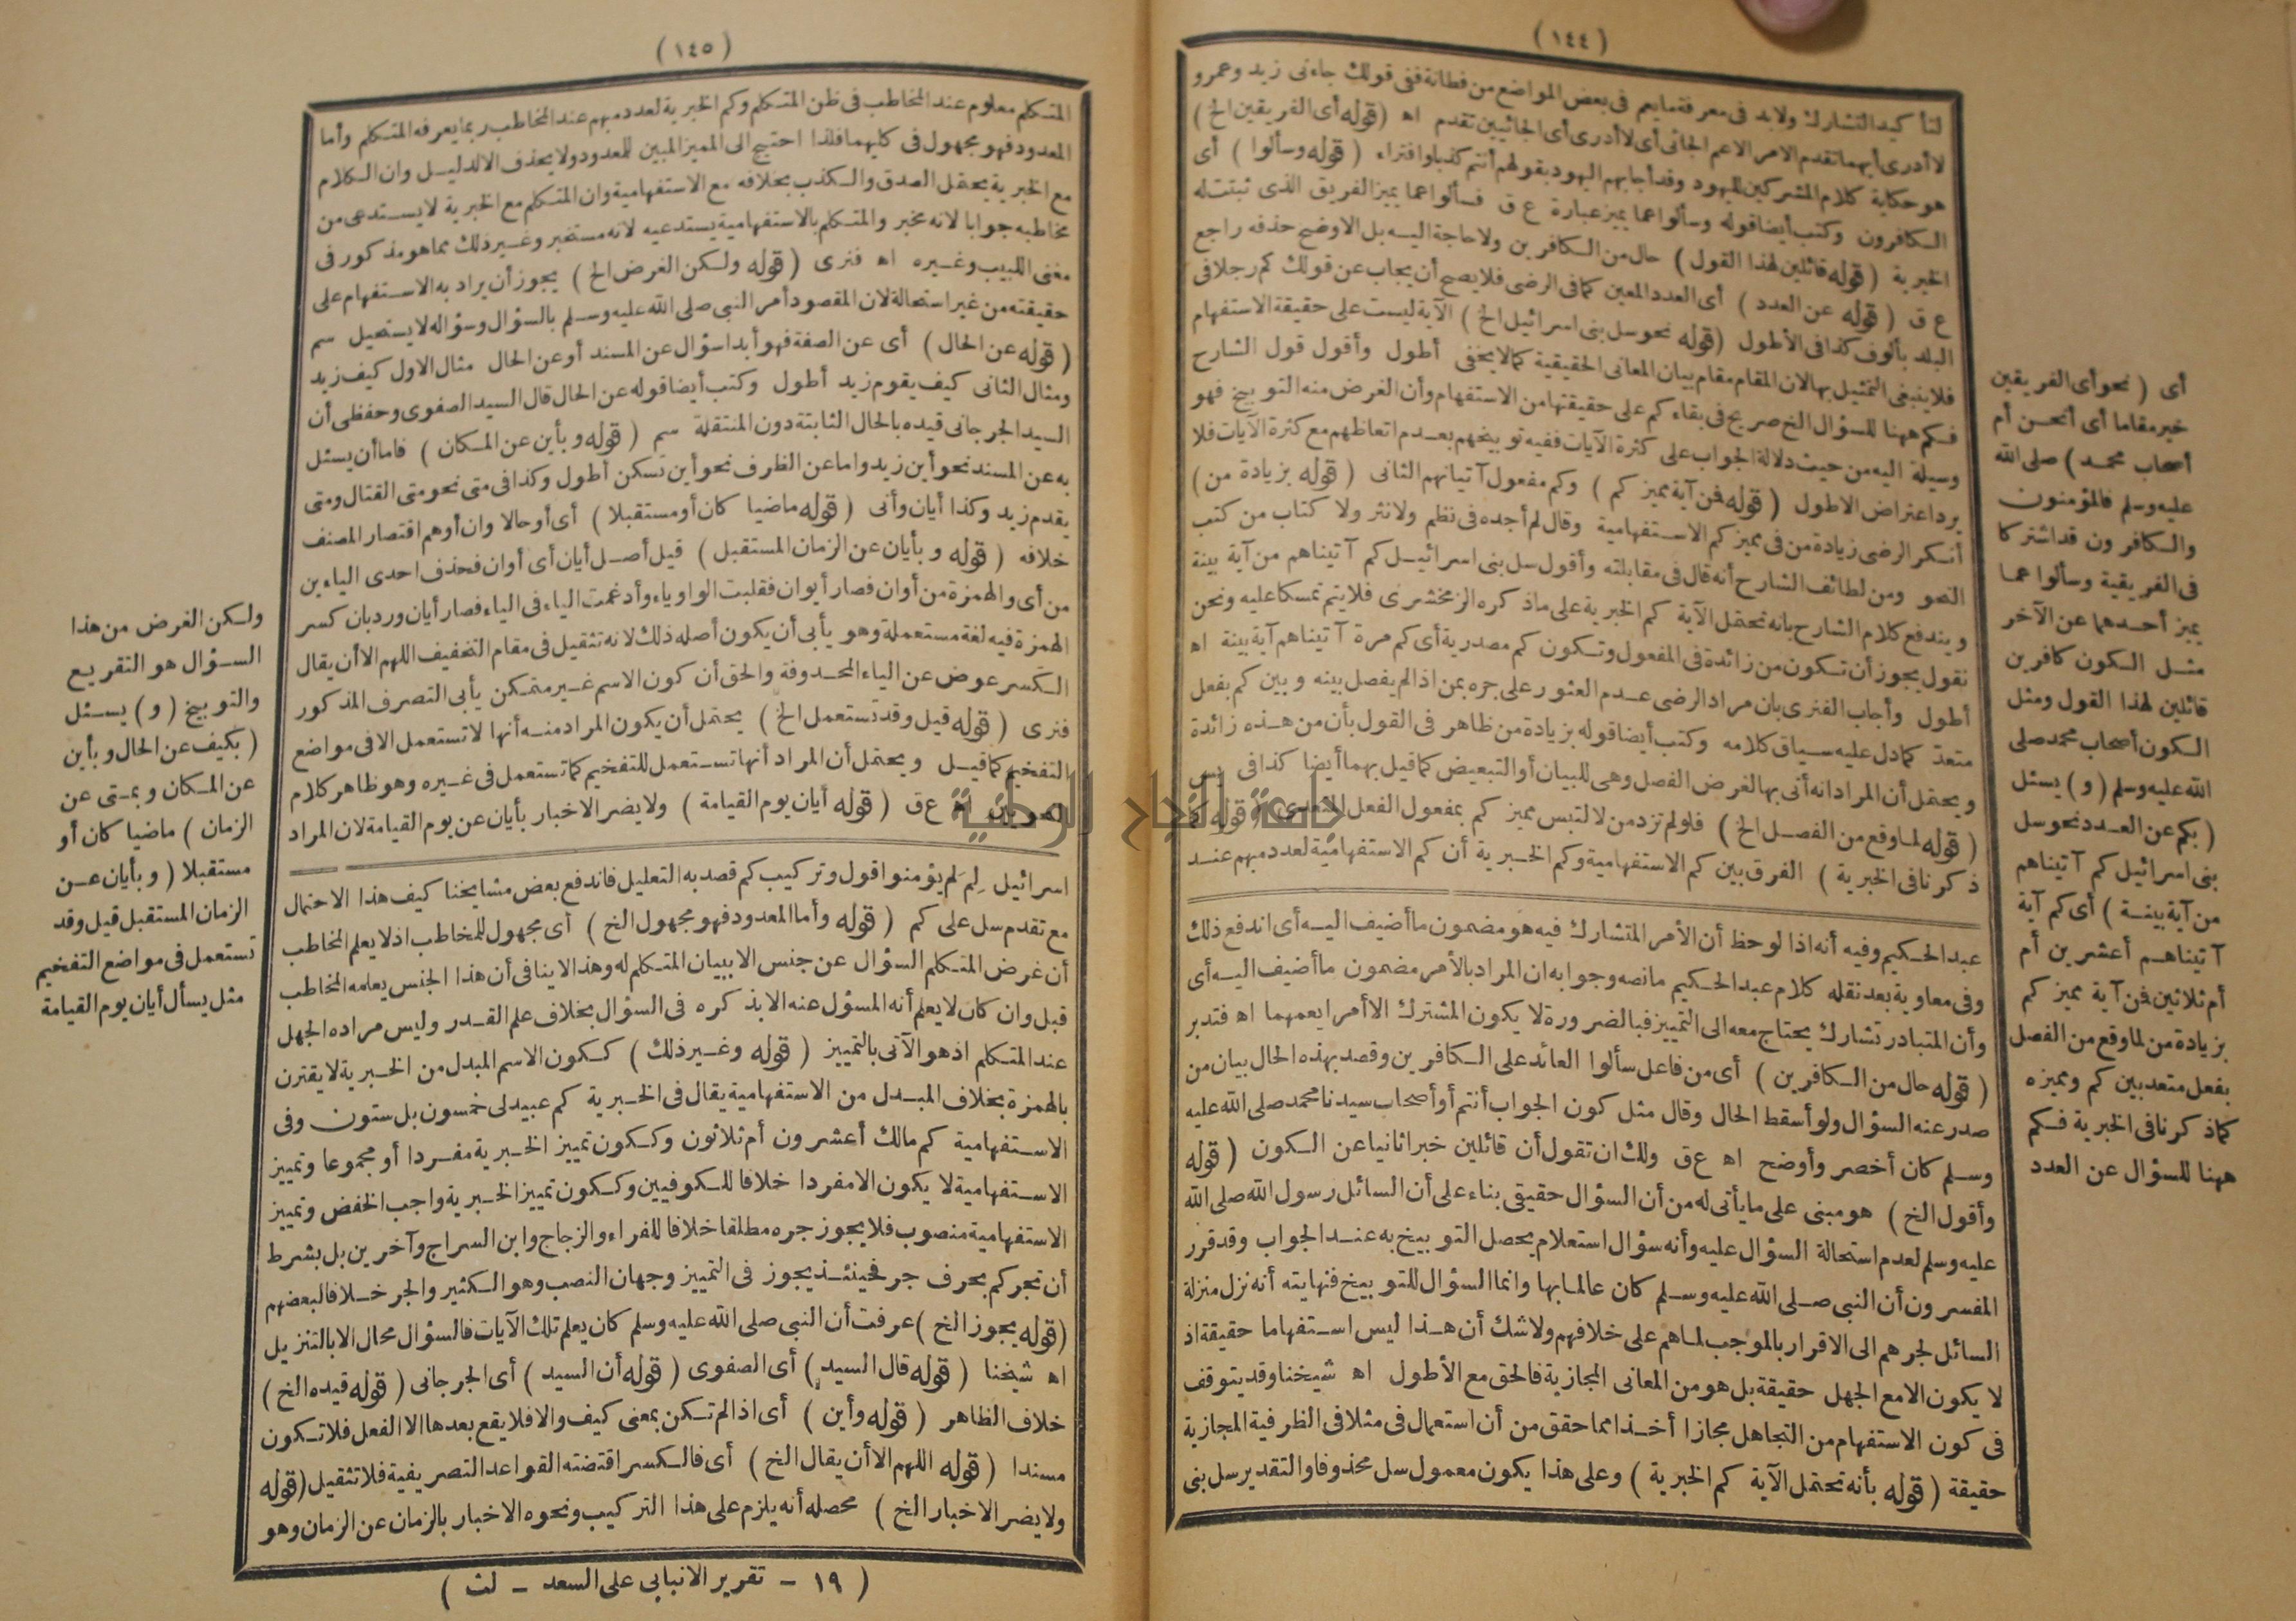 (١٤٤)
لتأكيد التشارك ولابد فى معرفة مايعم فى بعض المواضع من فطانة ففى قولك جاءنى زيد وعمرو
لا أدرى أيهما تقدم الامر الاعم الجائى أى لا أدرى أى الجائيين تقدم اه (قوله أى الفريقين الخ)
هو حكاية كلام المشركين لليهود وقد أجابهم اليهود بقولهم أنتم كذبا وافتراء (قوله وسألوا) أى
الكافرون وكتب أيضا قوله وسألوا عما يميز عبارة ع ق فسألوا عما يميز الفريق الذى ثبتت له
الخيرية (قوله قائلين لهذا القول) حال من الكافرين ولا حاجة اليه بل الاوضح حذفه راجع
ع ق (قوله عن العدد) أى العدد المعين كما فى الرضى فلا يصح أن يجاب عن قولك كم رجلا فى
البلد بألوف كذا فى الأطول (قوله نحو سل بنى اسرائيل الخ) الآية ليست على حقيقة الاستفهام
فلا ينبغى التمثيل بها لان المقام مقام بيان المعانى الحقيقية كما لا يخفى أطول وأقول قول الشارح
فكم ههنا للسؤال الخ صريح فى بقاء كم على حقيقتها من الاستفهام وأن الغرض منه التوبيخ فهو
وسيلة اليه من حيث دلالة الجواب على كثرة الآيات ففيه توبيخهم بعدم اتعاظهم مع كثرة الآيات فلا
يرد اعتراض الاطول (قوله فمن آية مميز كم) وكم مفعول آتيناهم الثانى (قوله بزيادة من)
أنكر الرضى زيادة من فى مميز كم الاستفهامية وقال لم أجده فى نظم ولا نثر ولا كتاب من كتب
النحو ومن لطائف الشارح أنه قال فى مقابلته وأقول سل بنى اسرائيل كم آتيناهم من آية بينة
ويندفع كلام الشارح بانه تحتمل الآية كم الخبرية على ماذكره الزمخشرى فلا يتم تمسكا عليه ونحن
نقول يجوز أن تكون من زائدة فى المفعول وتكون كم مصدرية أى كم مرة آتيناهم آية بينة اه
أطول وأجاب الفنرى بان مراد الرضى عدم العثور على جره بمن اذا لم يفصل بينه وبين كم بفعل
متعد كما دل عليه سياق كلامه وكتب أيضا قوله بزيادة من ظاهر فى القول بأن من هذه زائدة
ويحتمل أن المراد انه أتى بها لغرض الفصل وهى للبيان أو التبعيض كما قيل بهما أيضا كذا فى يس
(قوله لما وقع من الفصل الخ) فلو لم تزد من لالتبس مميز كم بمفعول الفعل المتعدى (قوله كما
ذكرنا فى الخبرية) الفرق بين كم الاستفهامية وكم الخبرية أن كم الاستفهامية لعدد مبهم عند
عبد الحكيم وفيه أنه اذا لوحظ أن الأمر المتشارك فيه هو مضمون ما أضيف اليه أى اندفع ذلك
وفى معاوية بعد نقله كلام عبد الحكيم مانصه وجوابه ان المراد بالأمر مضمون ما أضيف اليه أى
وأن المتبادر تشارك يحتاج معه الى التمييز فبالضرورة لا يكون المشترك الا أمرا يعمهما اه فتدبر
(قوله حال من الكافرين) أى من فاعل سألوا العائد على الكافرين وقصد بهذه الحال بيان من
صدر عنه السؤال ولو أسقط الحال وقال مثل كون الجواب أنتم أو أصحاب سيدنا محمد صلى الله عليه
وسلم كان أخصر وأوضح اه ع ق ولك ان تقول أن قائلين خبرا ثانيا عن الكون (قوله
وأقول الخ) هو مبنى على مايأتى له من أن السؤال حقيقى بناء على أن السائل رسول الله صلى الله
عليه وسلم لعدم استحالة السؤال عليه وأنه سؤال استعلام يحصل التوبيخ به عند الجواب وقد قرر
المفسرون أن النبى صلى الله عليه وسلم كان عالما بها وانما السؤال للتوبيخ فنهايته أنه نزل منزلة
السائل لجرهم الى الاقرار بالموجب لما هم على خلافهم ولا شك أن هذا ليس استفهاما حقيقة اذ
لا يكون الا مع الجهل حقيقة بل هو من المعانى المجازية فالحق مع الأطول اه شيخنا وقد يتوقف
فى كون الاستفهام من التجاهل مجازا أخذا مما حقق من أن استعمال فى مثلا فى الظرفية المجازية
حقيقة (قوله بأنه تحتمل الآية كم الخبرية) وعلى هذا يكون معمول سل محذوفا والتقدير سل بنى
أى (نحو أى الفريقين
خير مقاما أى أنحن أم
أصحاب محمد) صلى الله
عليه وسلم فالمؤمنون
والكافرون قد اشتركا
فى الفريقية وسألوا عما
يميز أحدهما عن الآخر
مثل الكون كافرين
قائلين لهذا القول ومثل
الكون أصحاب محمد صلى
الله عليه وسلم (و) يسئل
(بكم عن العدد نحو سل
بنى اسرائيل كم آتيناهم
من آية بينة) أى كم آية
آتيناهم أعشرين أم
أم ثلاثين فمن آية مميز كم
بزيادة من لما وقع من الفصل
بفعل متعد بين كم ومميزه
كما ذكرنا فى الخبرية فكم
ههنا للسؤال عن العدد
(١٤٥)
المتكلم معلوم عند المخاطب فى ظن المتكلم وكم الخبرية لعدد مبهم عند المخاطب ربما يعرفه المتكلم وأما
المعدود فهو مجهول فى كليهما فلذا احتيج الى المميز المبين للمعدود ولا يحذف الا لدليل وان الكلام
مع الخبرية يحتمل الصدق والكذب بخلافه مع الاستفهامية وان المتكلم مع الخبرية لا يستدعى من
مخاطبه جوابا لانه مخبر والمتكلم بالاستفهامية يستدعيه لانه مستخبر وغير ذلك مما هو مذكور فى
مغنى اللبيب وغيره اه فنرى (قوله ولكن الغرض الخ) يجوز أن يراد به الاستفهام على
حقيقته من غير استحالة لان المقصود أمر النبى صلى الله عليه وسلم بالسؤال وسؤاله لا يستحيل سم
(قوله عن الحال) أى عن الصفة فهو أبدا سؤال عن المسند أو عن الحال مثال الاول كيف زيد
ومثال الثانى كيف يقوم زيد أطول وكتب أيضا قوله عن الحال قال السيد الصفوى وحفظى أن
السيد الجرجانى قيده بالحال الثابتة دون المنتقلة سم (قوله وبأين عن المكان) فاما أن يسئل
به عن المسند نحو أين زيد واما عن الظرف نحو أين تسكن أطول وكذا فى متى نحو متى القتال ومتى
يقدم زيد وكذا أيان وأنى (قوله ماضيا كان أو مستقبلا) أى أو حالا وان أوهم اقتصار المصنف
خلافه (قوله وبأيان عن الزمان المستقبل) قيل أصل أيان أى أوان فحذف احدى الياءين
من أى والهمزة من أوان فصار أيوان فقلبت الواو ياء وأدغمت الياء فى الياء فصار أيان ورد بان كسر
الهمزة فيه لغة مستعملة وهو يأبى أن يكون أصله ذلك لانه تثقيل فى مقام التخفيف اللهم الا أن يقال
الكسر عوض عن الياء المحذوفة والحق أن كون الاسم غير متمكن يأبى التصرف المذكور
فنرى (قوله قيل وقد تستعمل الخ) يحتمل أن يكون المراد منه أنها لا تستعمل الا فى مواضع
التفخيم كما قيل ويحتمل أن المراد أنها تستعمل للتفخيم كما تستعمل فى غيره وهو ظاهر كلام
النحويين اه ع ق (قوله أيان يوم القيامة) ولا يضر الاخبار بأيان عن يوم القيامة لان المراد
اسرائيل لِمَ لَم يؤمنوا قول وتركيب كم قصد به التعليل فاندفع بعض مشايخنا كيف هذا الاحتمال
مع تقدم سل على كم (قوله وأما المعدود فهو مجهول الخ) أى مجهول للمخاطب اذ لا يعلم المخاطب
أن غرض المتكلم السؤال عن جنس الا ببيان المتكلم له وهذا لا ينافى أن هذا الجنس يعلمه المخاطب
قبل وان كان لا يعلم أنه المسؤل عنه الا بذكره فى السؤال بخلاف علم القدر وليس مراده الجهل
عند المتكلم اذ هو الآتى بالتمييز (قوله وغير ذلك) ككون الاسم المبدل من الخبرية لا يقترن
بالهمزة بخلاف المبدل من الاستفهامية يقال فى الخبرية كم عبيد لى خمسون بل ستون وفى
الاستفهامية كم مالك أعشرون أم ثلاثون وككون تمييز الخبرية مفردا أو مجموعا وتمييز
الاستفهامية لا يكون الا مفردا خلافا للكوفيين وككون تمييز الخبرية واجب الخفض وتمييز
الاستفهامية منصوب فلا يجوز جره مطلقا خلافا للفراء والزجاج وابن السراج وآخرين بل بشرط
أن تجر كم بحرف جر فحينئذ يجوز فى التمييز وجهان النصب وهو الكثير والجر خلافا لبعضهم
(قوله يجوز الخ) عرفت أن النبى صلى الله عليه وسلم كان يعلم تلك الآيات فالسؤال محال الا بالتنزيل
اه شيخنا (قوله قال السيد) أى الصفوى (قوله أن السيد) أى الجرجانى (قوله قيده الخ)
خلاف الظاهر (قوله وأين) أى اذا لم تكن بمعنى كيف والا فلا يقع بعدها الا الفعل فلا تكون
مسندا (قوله اللهم الا أن يقال الخ) أى فالكسر اقتضته القواعد التصريفية فلا تثقيل (قوله
ولا يضر الاخبار الخ) محصله أنه يلزم على هذا التركيب ونحوه الاخبار بالزمان عن الزمان وهو
ولكن الغرض من هذا
السؤال هو التقريع
والتوبيخ (و) يسئل
(بكيف عن الحال وبأين
عن المكان وبمتى عن
الزمان) ماضيا كان أو
مستقبلا (وبأيان عن
الزمان المستقبل قيل وقد
تستعمل فى مواضع التفخيم
مثل يسأل أيان يوم القيامة
(١٩ - تقرير الانبابى على السعد - لث)
جامعة النجاح الوطنية